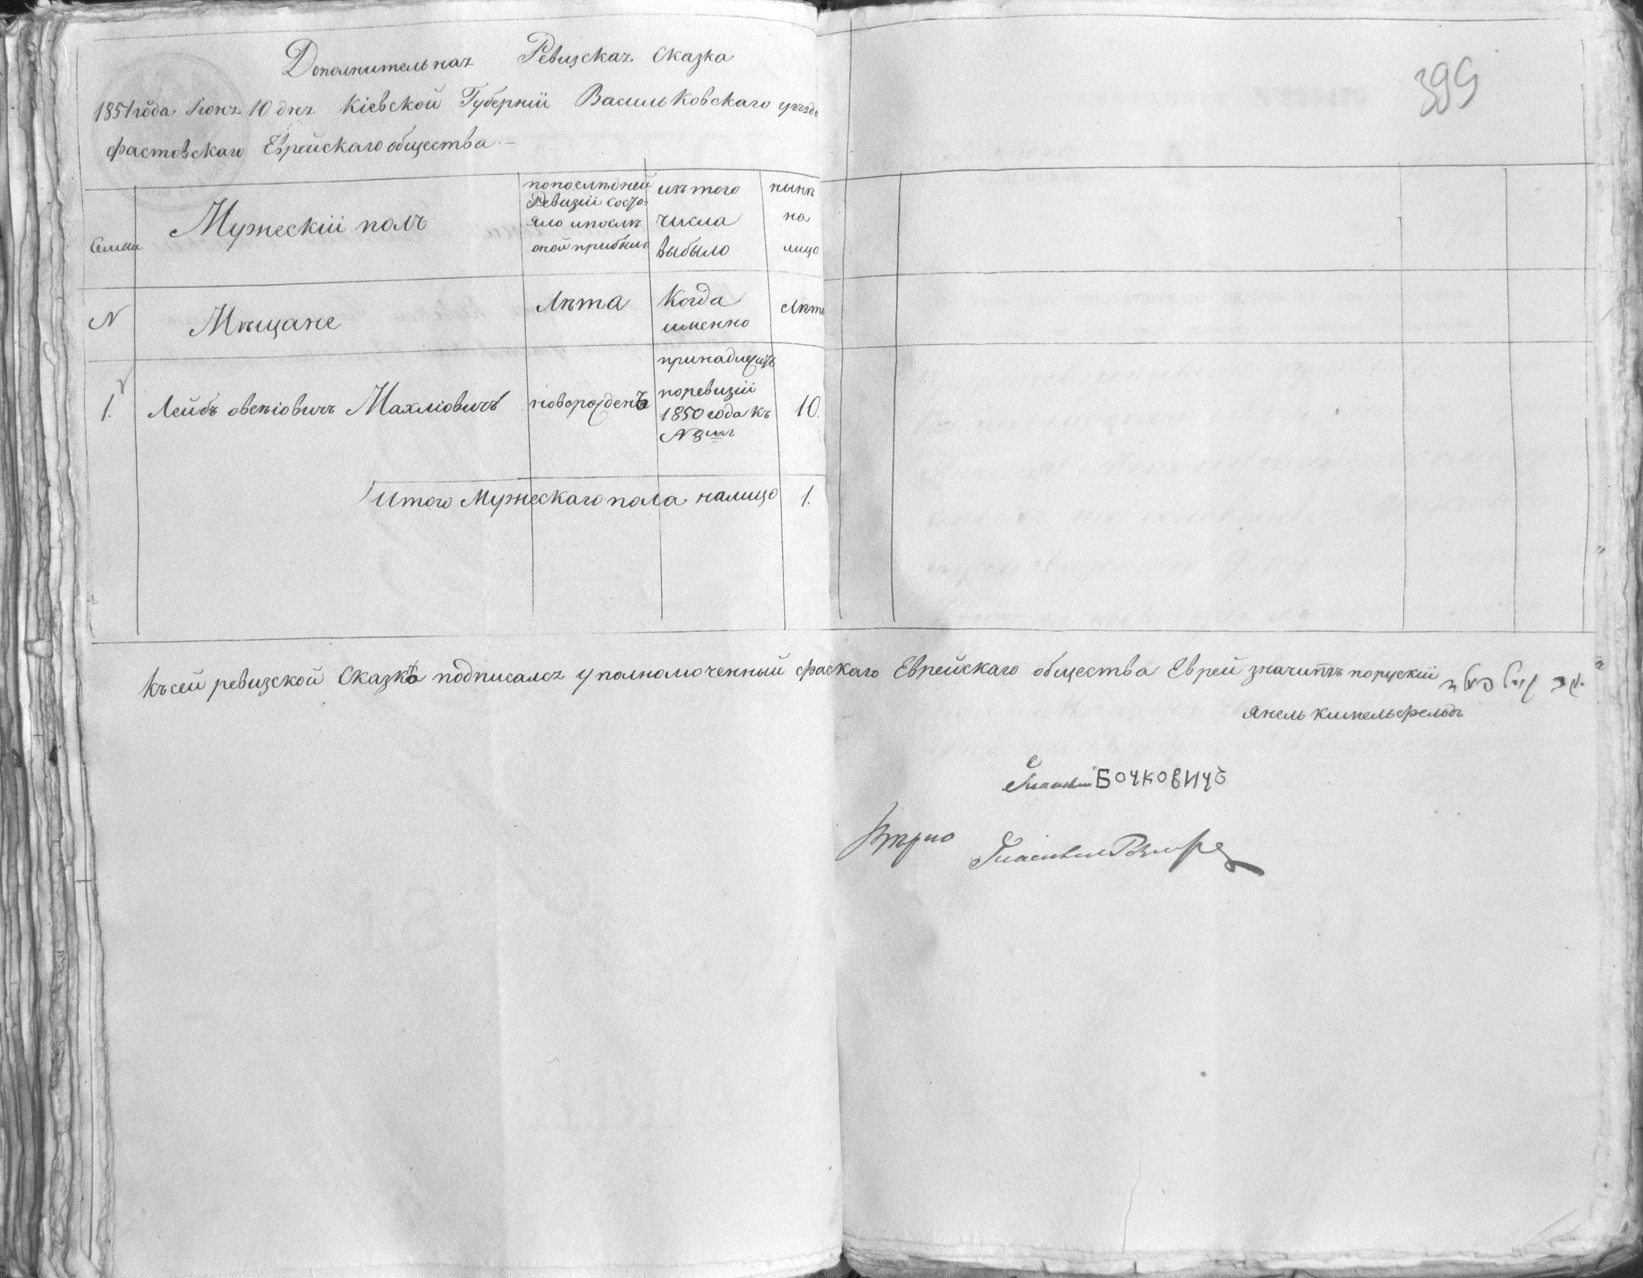 Дополнительная Ревизская Сказка
1851 года Июня 10 дня Кіевской Губерніи Васильковскаго уѣзда
Фастовскаго Еврейскаго общества.
395
Семьи
Мужескій полъ
по послѣдней
Ревизіи состо
яло и послѣ
оной прибыло
изъ того
числа
выбыло
нынѣ
на
лицо
N
Мѣщане
Лѣта
Когда
именно
Лѣта
1.
Лейбъ Овсѣіовичъ Махліовичъ
новорожденъ
принадлежитъ
по ревизіи
1850 года къ
N
10.
Итого Мужескаго пола на лицо 1.
Къ сей ревизской Сказкѣ подписался уполномоченный Фаскаго Еврейскаго общества Еврей значитъ по руский
Янель Кимельфельдъ
Гласный БОЧКОВИЧЪ
Вѣрно
Гласный